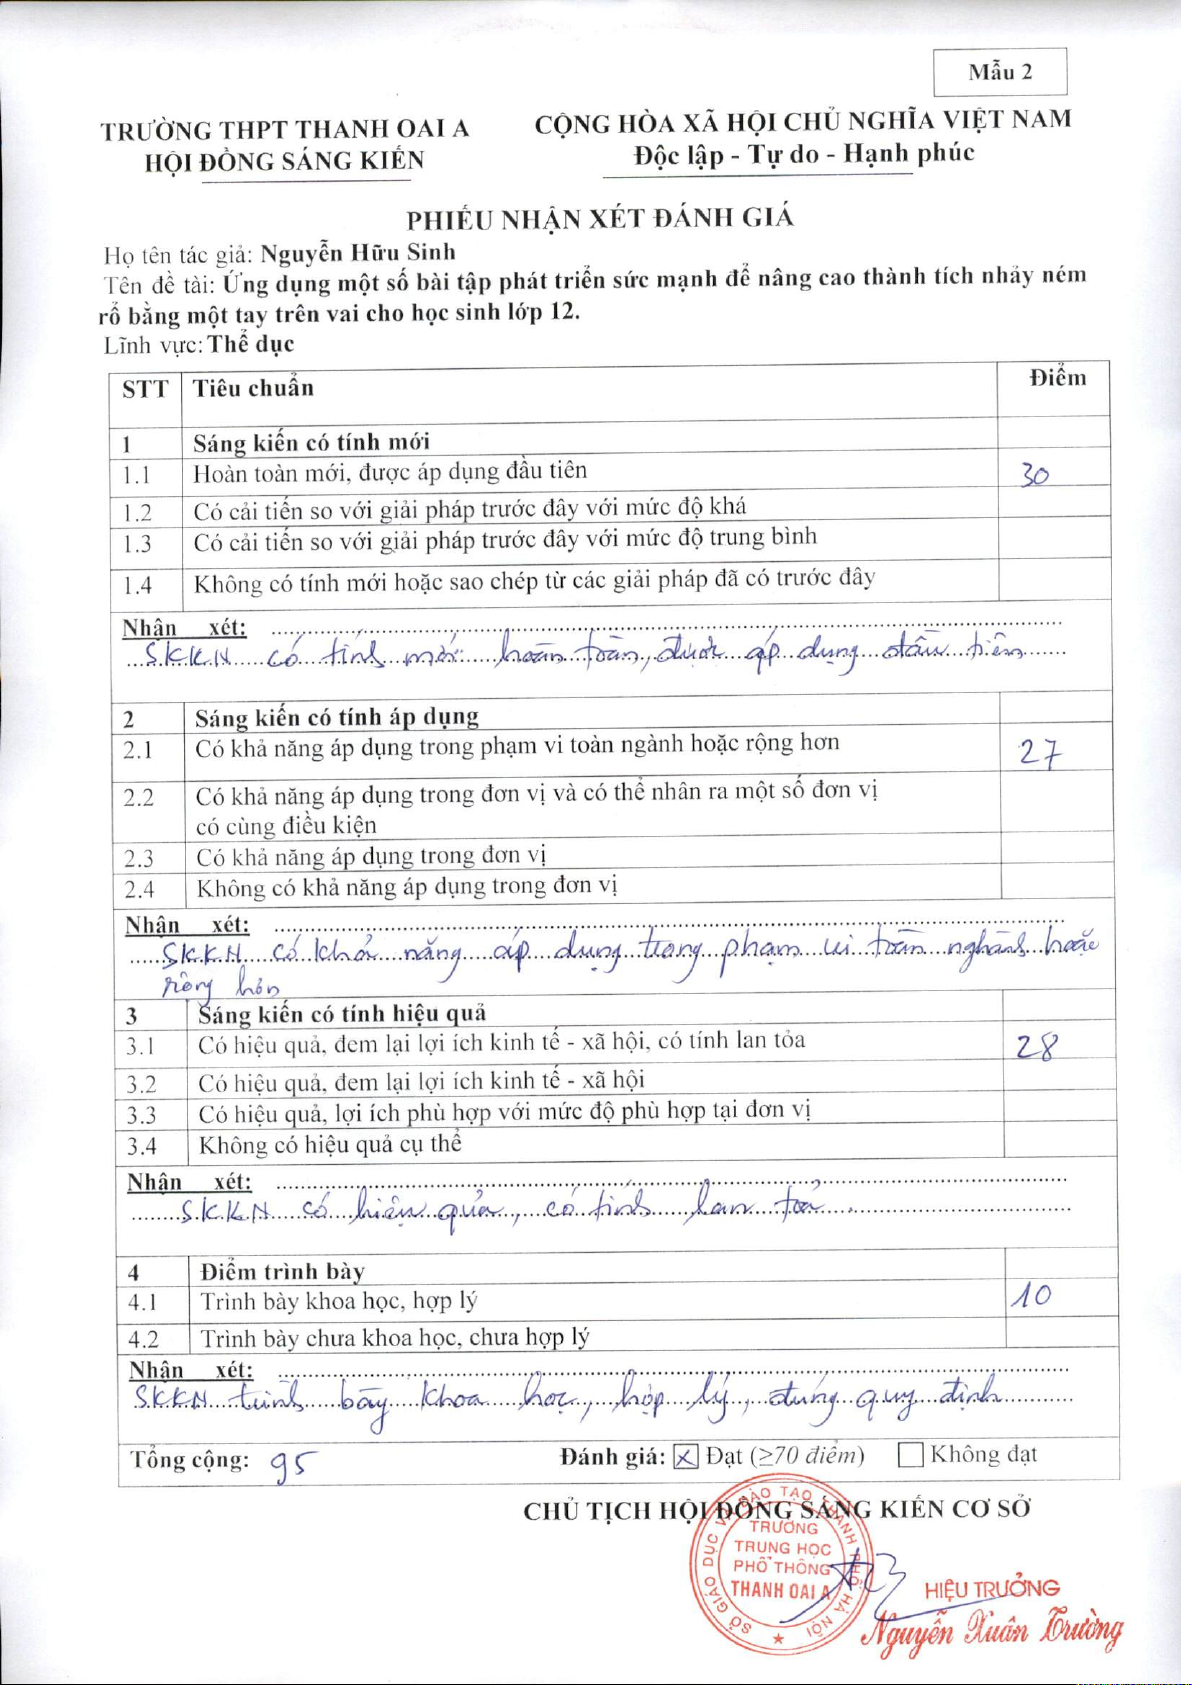 Mẫu 2
TRƯỜNG THPT THANH OAI A
HỘI ĐỒNG SÁNG KIẾN
CỘNG HÒA XÃ HỘI CHỦ NGHĨA VIỆT NAM
Độc lập - Tự do - Hạnh phúc
PHIẾU NHẬN XÉT ĐÁNH GIÁ
Họ tên tác giả: Nguyễn Hữu Sinh
Tên đề tài: Ứng dụng một số bài tập phát triển sức mạnh để nâng cao thành tích nhảy ném
rổ bằng một tay trên vai cho học sinh lớp 12.
Lĩnh vực: Thể dục
STT Tiêu chuẩn Điểm
1 Sáng kiến có tính mới
1.1 Hoàn toàn mới, được áp dụng đầu tiên 30
1.2 Có cải tiến so với giải pháp trước đây với mức độ khá
1.3 Có cải tiến so với giải pháp trước đây với mức độ trung bình
1.4 Không có tính mới hoặc sao chép từ các giải pháp đã có trước đây
Nhận xét:
SKKN có tính mới hoàn toàn, được áp dụng đầu tiên
2 Sáng kiến có tính áp dụng
2.1 Có khả năng áp dụng trong phạm vi toàn ngành hoặc rộng hơn 27
2.2 Có khả năng áp dụng trong đơn vị và có thể nhân ra một số đơn vị
có cùng điều kiện
2.3 Có khả năng áp dụng trong đơn vị
2.4 Không có khả năng áp dụng trong đơn vị
Nhận xét:
SKKN có khả năng áp dụng trong phạm vi toàn nghành hoặc
rộng hơn
3 Sáng kiến có tính hiệu quả
3.1 Có hiệu quả, đem lại lợi ích kinh tế - xã hội, có tính lan tỏa 28
3.2 Có hiệu quả, đem lại lợi ích kinh tế - xã hội
3.3 Có hiệu quả, lợi ích phù hợp với mức độ phù hợp tại đơn vị
3.4 Không có hiệu quả cụ thể
Nhận xét:
SKKN có hiệu quả, có tính lan toả.
4 Điểm trình bày
4.1 Trình bày khoa học, hợp lý 10
4.2 Trình bày chưa khoa học, chưa hợp lý
Nhận xét:
SKKN trình bày khoa học, hợp lý, đúng quy định
Tổng cộng: 95 Đánh giá: x Đạt (≥70 điểm) Không đạt
CHỦ TỊCH HỘI ĐỒNG SÁNG KIẾN CƠ SỞ
SỞ GIÁO DỤC VÀ ĐÀO TẠO THÀNH PHỐ HÀ NỘI
TRƯỜNG
TRUNG HỌC
PHỔ THÔNG
THANH OAI A
HIỆU TRƯỞNG
Nguyễn Xuân Trường